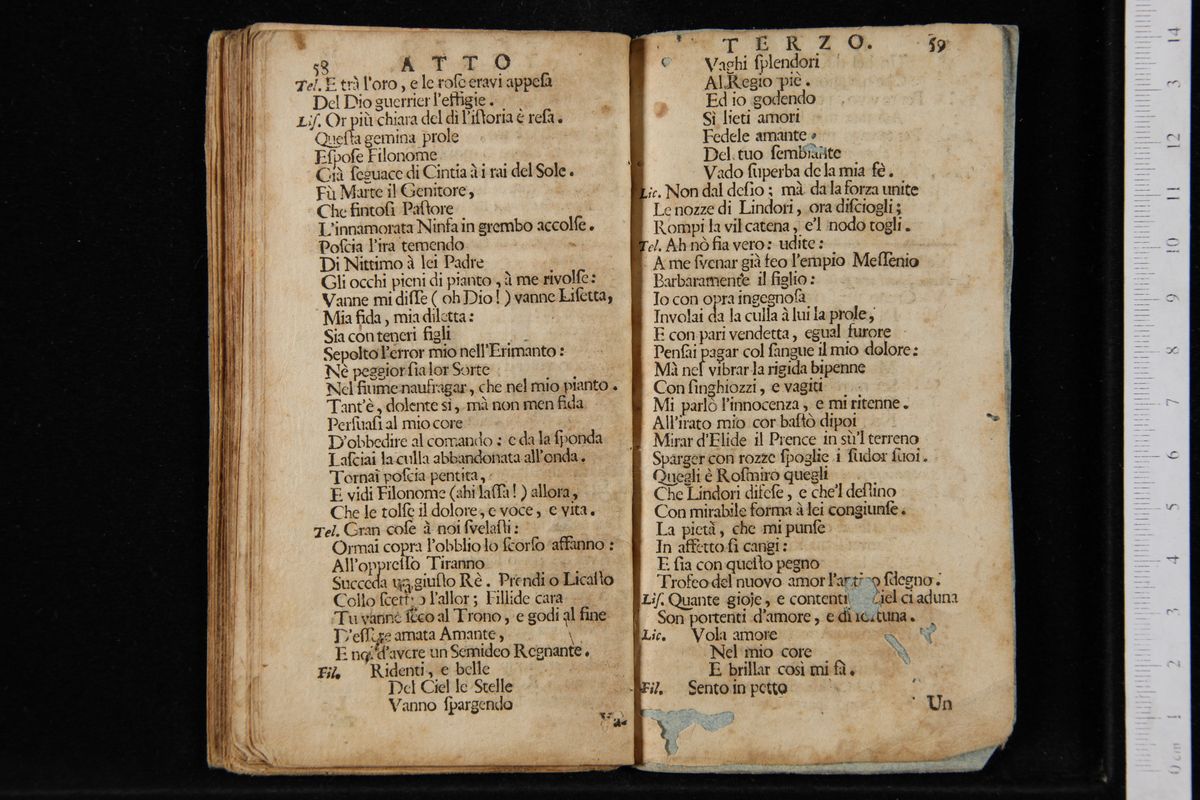 58 ATTO
Tel. E trà l'oro, e le rose eravi appesa
Del Dio guerrier l'effigie.
Lis. Or più chiara del dì l'istoria è resa.
Questa gemina prole
Espose Filonome
Già seguace di Cintia à i rai del Sole.
Fù Marte il Genitore,
Che fintosi Pastore
L'innamorata Ninfa in grembo accolse.
Poscia l'ira temendo
Di Nittimo à lei Padre
Gli occhi pieni di pianto, à me rivolse:
Vanne mi disse (oh Dio!) vanne Lisetta,
Mia fida, mia diletta:
Sia con teneri figli
Sepolto l'error mio nell'Erimanto:
Nè peggior sia lor Sorte
Nel fiume naufragar, che nel mio pianto.
Tant'è, dolente sì, mà non men fida
Persuasi al mio core
D'obbedire al comando: e da la sponda
Lasciai la culla abbandonata all'onda.
Tornai poscia pentita,
E vidi Filonome (ahi lassa!) allora,
Che le tolse il dolore, e voce, e vita.
Tel. Gran cose à noi svelasti:
Ormai copra l'obblio lo scorso affanno:
All'oppresso Tiranno
Succeda un giusto Rè. Prendi o Licasto
Collo scettro l'allor; Fillide cara
Tu vanne seco al Trono, e godi al fine
D'essere amata Amante,
E d'avere un Semideo Regnante.
Fil. Ridenti, e belle
Del Ciel le Stelle
Vanno spargendo
Va-
TERZO. 59
Vaghi splendori
Al Regio piè.
Ed io godendo
Sì lieti amori
Fedele amante
Del tuo sembiante
Vado superba de la mia fè.
Lic. Non dal desio; mà da la forza unite
Le nozze di Lindori, ora disciogli;
Rompi la vil catena, e'l nodo togli.
Tel. Ah nò sia vero: udite:
A me svenar già feo l'empio Messenio
Barbaramente il figlio:
Io con opra ingegnosa
Involai da la culla à lui la prole,
E con pari vendetta, egual furore
Pensai pagar col sangue il mio dolore:
Mà nel vibrar la rigida bipenne
Con singhiozzi, e vagiti
Mi parlò l'innocenza, e mi ritenne.
All'irato mio cor bastò dipoi
Mirar d'Elide il Prence in sù'l terreno
Sparger con rozze spoglie i sudor suoi.
Quegli è Rosmiro quegli
Che Lindori difese, e che'l destino
Con mirabile forma à lei congiunse.
La pietà, che mi punse
In affetto si cangi:
E sia con questo pegno
Trofeo del nuovo amor l'antico sdegno.
Lis. Quante gioje, e contenti Ciel ci aduna
Son portenti d'amore, e di fortuna.
Lic. Vola amore
Nel mio core
E brillar così mi fà.
Fil. Sento in petto
Un